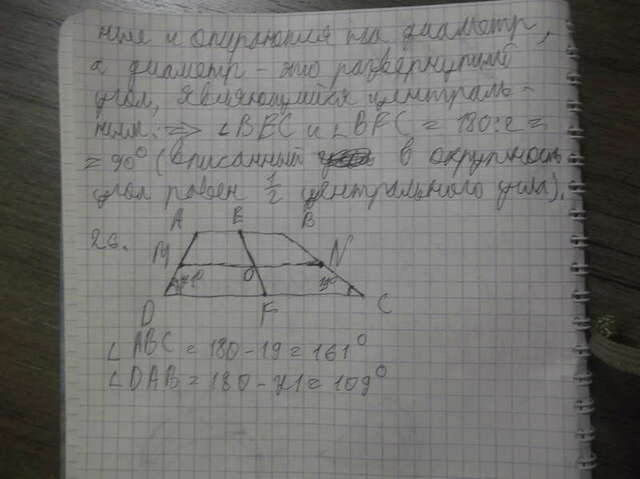 ные и опираются на диаметр,
а диаметр - это развернутый
угол, являющийся централь-
ным. => ∠BEC и ∠BFC = 180:2 =
= 90° (вписанный в окружность
угол равен 1/2 центрального угла).
26.
A E B
M O N
71° 19°
D F C
∠ABC = 180 - 19 = 161°
∠DAB = 180 - 71 = 109°